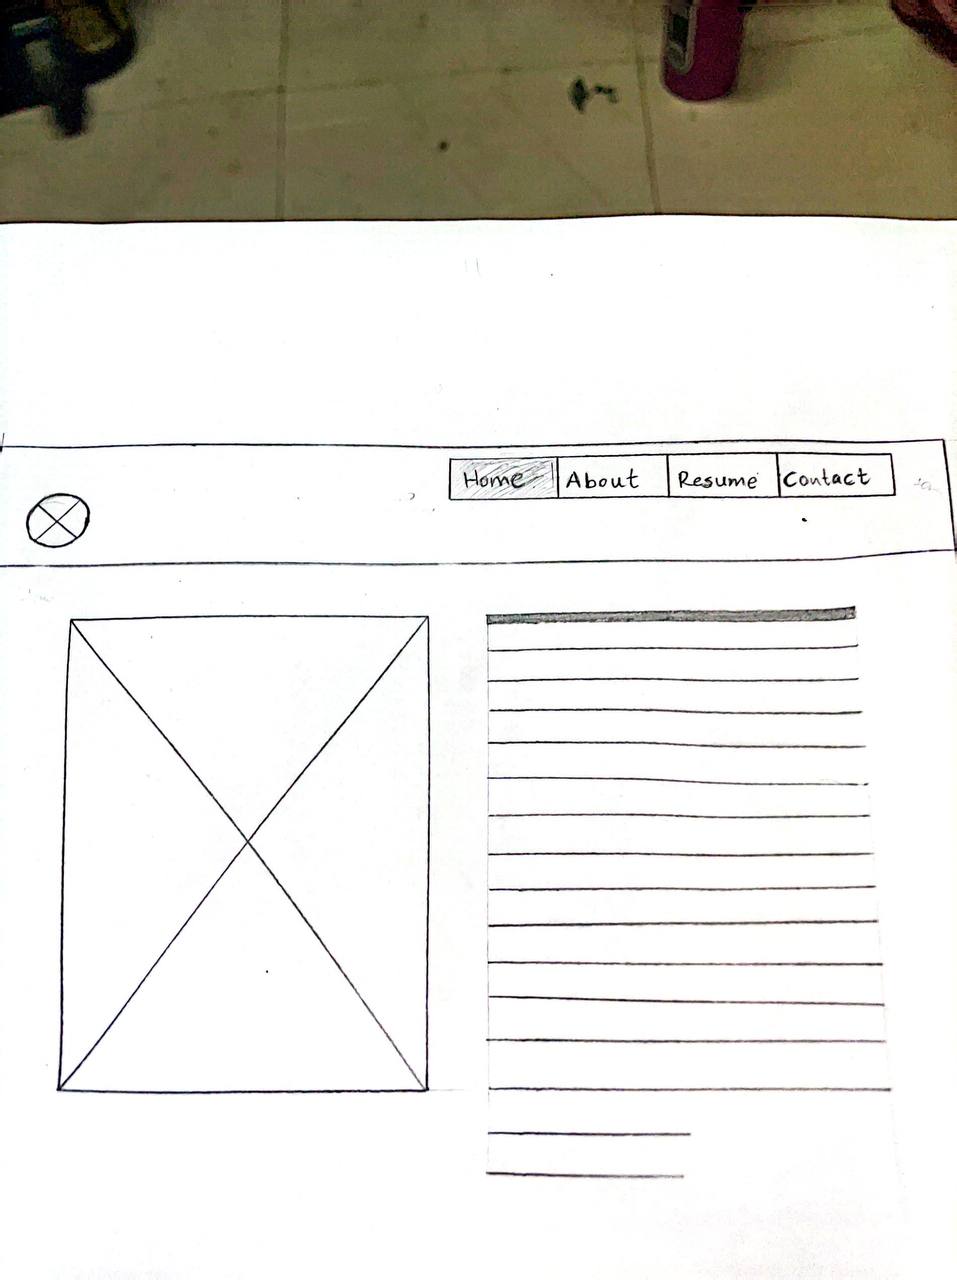 Home About Resume Contact